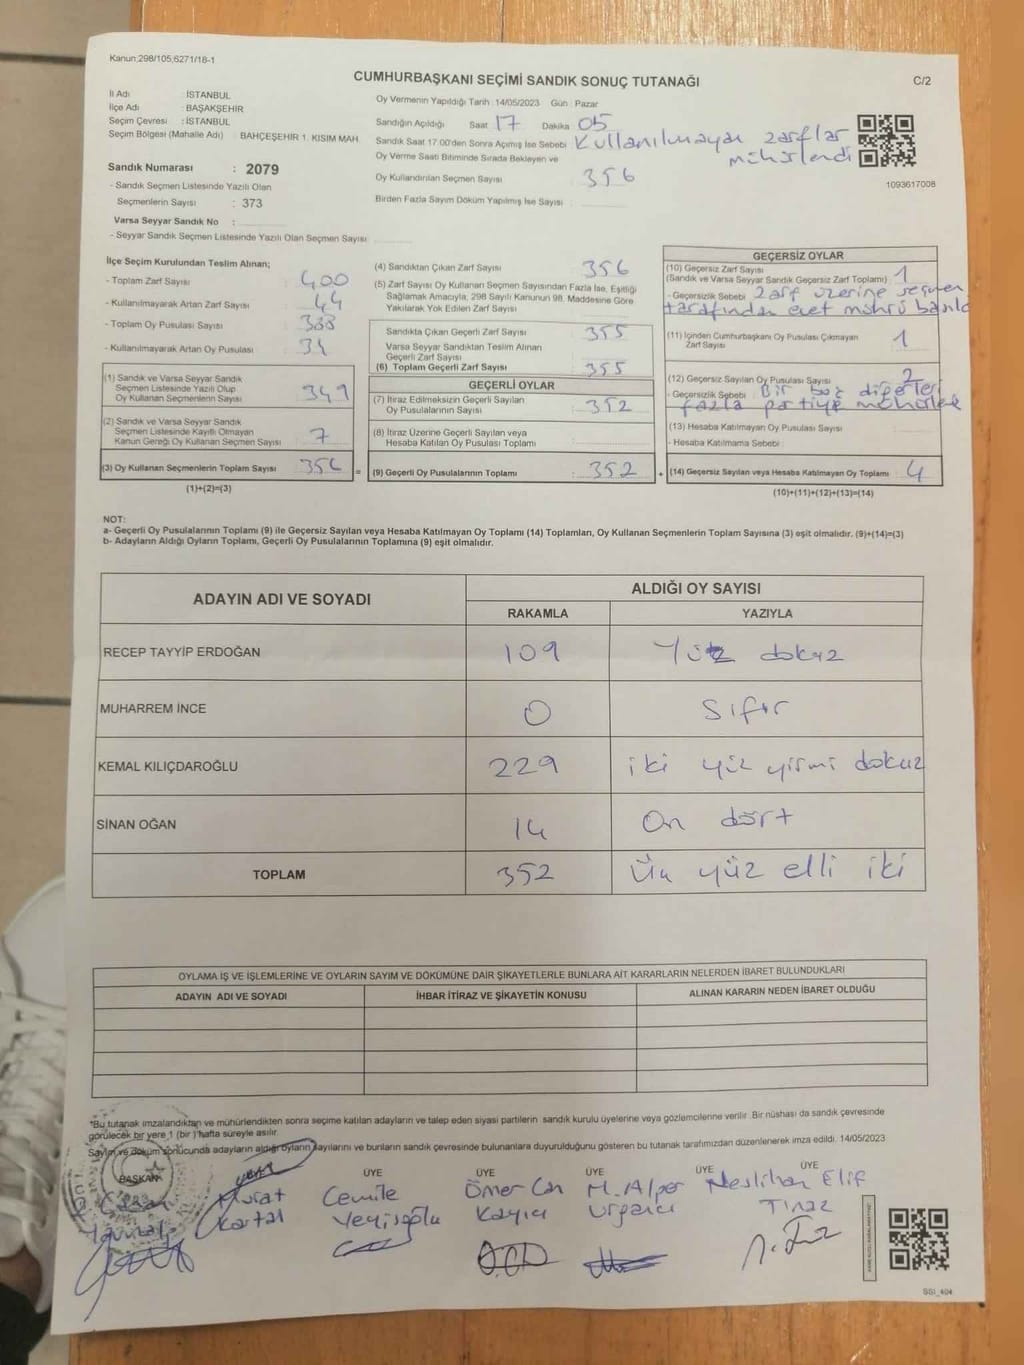 Kanun;298/105,6271/18-1
CUMHURBAŞKANI SEÇİMİ SANDIK SONUÇ TUTANAĞI
C/2
İl Adı : İSTANBUL
İlçe Adı : BAŞAKŞEHİR
Seçim Çevresi : İSTANBUL
Seçim Bölgesi (Mahalle Adı) : BAHÇEŞEHİR 1. KISIM MAH
Sandık Numarası : 2079
- Sandık Seçmen Listesinde Yazılı Olan
Seçmenlerin Sayısı : 373
Varsa Seyyar Sandık No :
- Seyyar Sandık Seçmen Listesinde Yazılı Olan Seçmen Sayısı
Oy Vermenin Yapıldığı Tarih : 14/05/2023 Gün : Pazar
Sandığın Açıldığı Saat 17 Dakika 05
Sandık Saat 17.00'den Sonra Açımış İse Sebebi Kullanılmayan zarflar
mühürlendi
Oy Verme Saati Bitiminde Sırada Bekleyen ve
Oy Kullandırılan Seçmen Sayısı : 356
Birden Fazla Sayım Döküm Yapılmış İse Sayısı :
1093617008
İlçe Seçim Kurulundan Teslim Alınan;
- Toplam Zarf Sayısı : 400
- Kullanılmayarak Artan Zarf Sayısı : 44
- Toplam Oy Pusulası Sayısı : 388
- Kullanılmayarak Artan Oy Pusulası :
(1) Sandık ve Varsa Seyyar Sandık
Seçmen Listesinde Yazılı Olup
Oy Kullanan Seçmenlerin Sayısı : 349
(2) Sandık ve Varsa Seyyar Sandık
Seçmen Listesinde Kayıtlı Olmayan
Kanun Gereği Oy Kullanan Seçmen Sayısı : 7
(3) Oy Kullanan Seçmenlerin Toplam Sayısı : 356 =
(1)+(2)=(3)
(4) Sandıktan Çıkan Zarf Sayısı : 356
(5) Zarf Sayısı Oy Kullanan Seçmen Sayısından Fazla İse, Eşitliği
Sağlamak Amacıyla, 298 Sayılı Kanunun 98. Maddesine Göre
Yakılarak Yok Edilen Zarf Sayısı :
Sandıkta Çıkan Geçerli Zarf Sayısı : 355
Varsa Seyyar Sandıktan Teslim Alınan
Geçerli Zarf Sayısı :
(6) Toplam Geçerli Zarf Sayısı : 355
GEÇERLİ OYLAR
(7) İtiraz Edilmeksizin Geçerli Sayılan
Oy Pusulalarının Sayısı : 352
(8) İtiraz Üzerine Geçerli Sayılan veya
Hesaba Katılan Oy Pusulası Toplamı :
(9) Geçerli Oy Pusulalarının Toplamı : 352 +
GEÇERSİZ OYLAR
(10) Geçersiz Zarf Sayısı
(Sandık ve Varsa Seyyar Sandık Geçersiz Zarf Toplamı) : 1
- Geçersizlik Sebebi : Zarf üzerine seçmen
tarafından evet mührü basıldı
(11) İçinden Cumhurbaşkanı Oy Pusulası Çıkmayan
Zarf Sayısı : 1
(12) Geçersiz Sayılan Oy Pusulası Sayısı : 2
- Geçersizlik Sebebi : Bir boş diğerleri
fazla partiye
(13) Hesaba Katılmayan Oy Pusulası Sayısı :
- Hesaba Katılmama Sebebi :
(14) Geçersiz Sayılan veya Hesaba Katılmayan Oy Toplamı : 4
(10)+(11)+(12)+(13)=(14)
NOT:
a- Geçerli Oy Pusulalarının Toplamı (9) ile Geçersiz Sayılan veya Hesaba Katılmayan Oy Toplamı (14) Toplamları, Oy Kullanan Seçmenlerin Toplam Sayısına (3) eşit olmalıdır. (9)+(14)=(3)
b- Adayların Aldığı Oyların Toplamı, Geçerli Oy Pusulalarının Toplamına (9) eşit olmalıdır.
ADAYIN ADI VE SOYADI
ALDIĞI OY SAYISI
RAKAMLA YAZIYLA
RECEP TAYYİP ERDOĞAN 109 Yüz dokuz
MUHARREM İNCE 0 Sıfır
KEMAL KILIÇDAROĞLU 229 iki yüz yirmi dokuz
SİNAN OĞAN 14 On dört
TOPLAM 352 Üç yüz elli iki
OYLAMA İŞ VE İŞLEMLERİNE VE OYLARIN SAYIM VE DÖKÜMÜNE DAİR ŞİKAYETLERLE BUNLARA AİT KARARLARIN NELERDEN İBARET BULUNDUKLARI
ADAYIN ADI VE SOYADI İHBAR İTİRAZ VE ŞİKAYETİN KONUSU ALINAN KARARIN NEDEN İBARET OLDUĞU
*Bu tutanak imzalandıktan ve mühürlendikten sonra seçime katılan adayların ve talep eden siyasi partilerin sandık kurulu üyelerine veya gözlemcilerine verilir. Bir nüshası da sandık çevresinde
görülecek bir yere 1 (bir) hafta süreyle asılır.
Sayım ve döküm sonucunda adayların aldığı oyların sayılarını ve bunların sandık çevresinde bulunanlara duyurulduğunu gösteren bu tutanak tarafımızdan düzenlenerek imza edildi. 14/05/2023
BAŞKAN ÜYE ÜYE ÜYE ÜYE ÜYE
Murat Cemile Ömer Can M. Alper Neslihan Elif
Kartal Yeniçoğlu Kayıcı Urgancı Tınaz
SSI_404